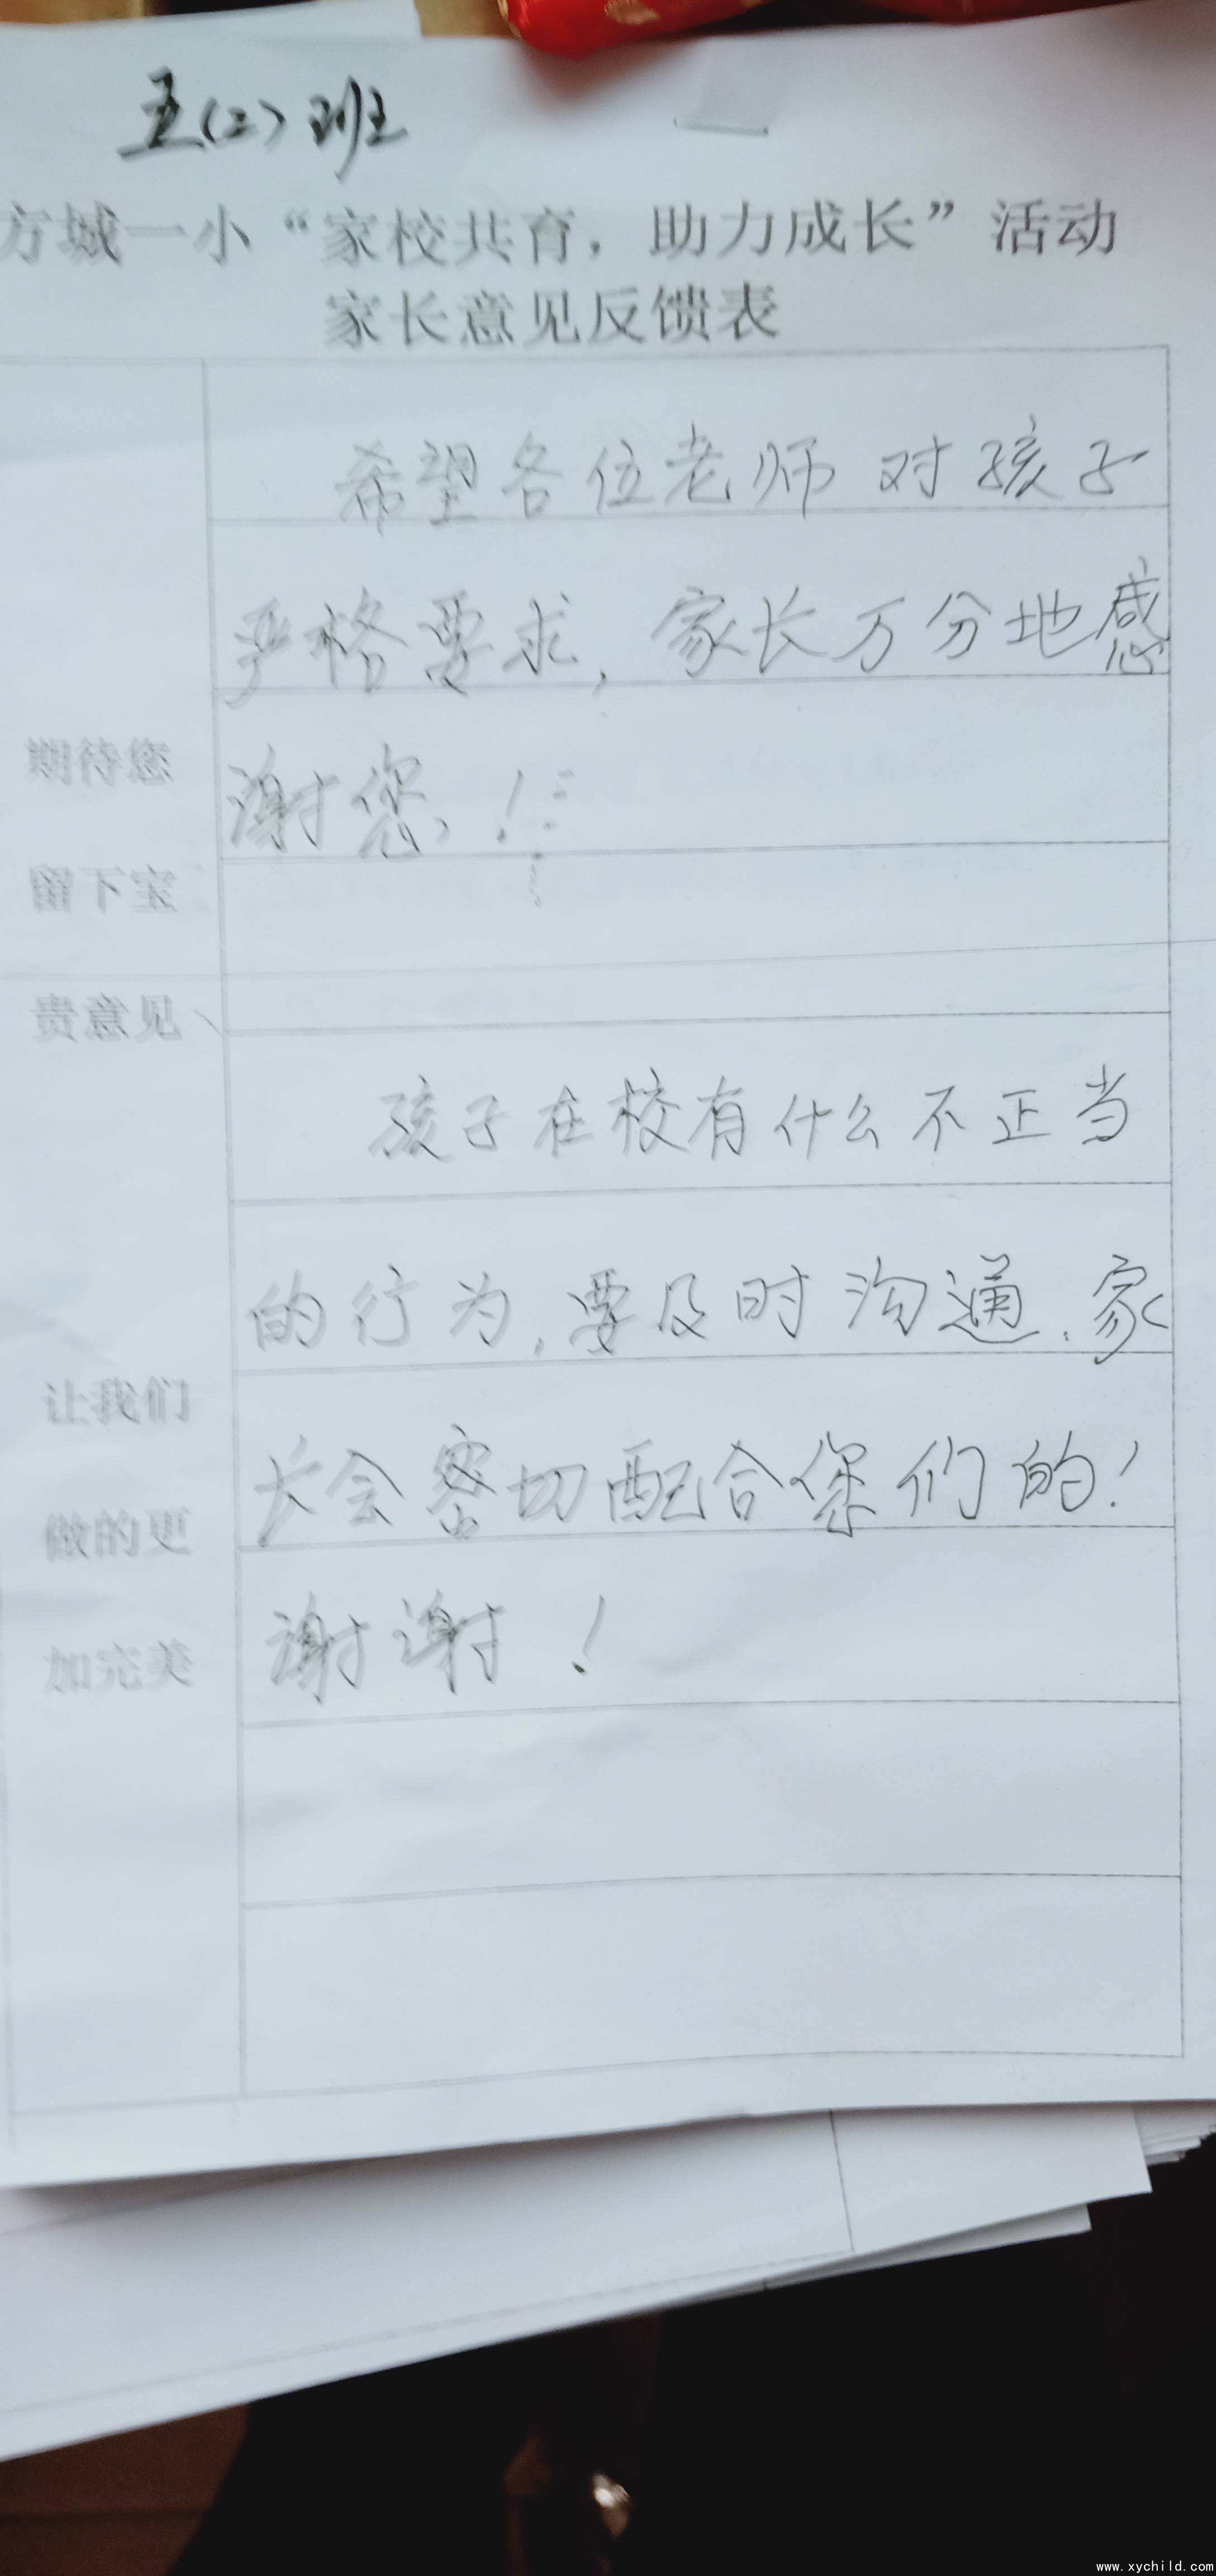 五(二)班
方城一小“家校共育，助力成长”活动
家长意见反馈表
希望各位老师对孩子
严格要求，家长万分地感
谢您，！
期待您
留下宝
贵意见
孩子在校有什么不正当
的行为，要及时沟通，家
长会密切配合您们的！
谢谢！
让我们
做的更
加完美
www.xychild.com